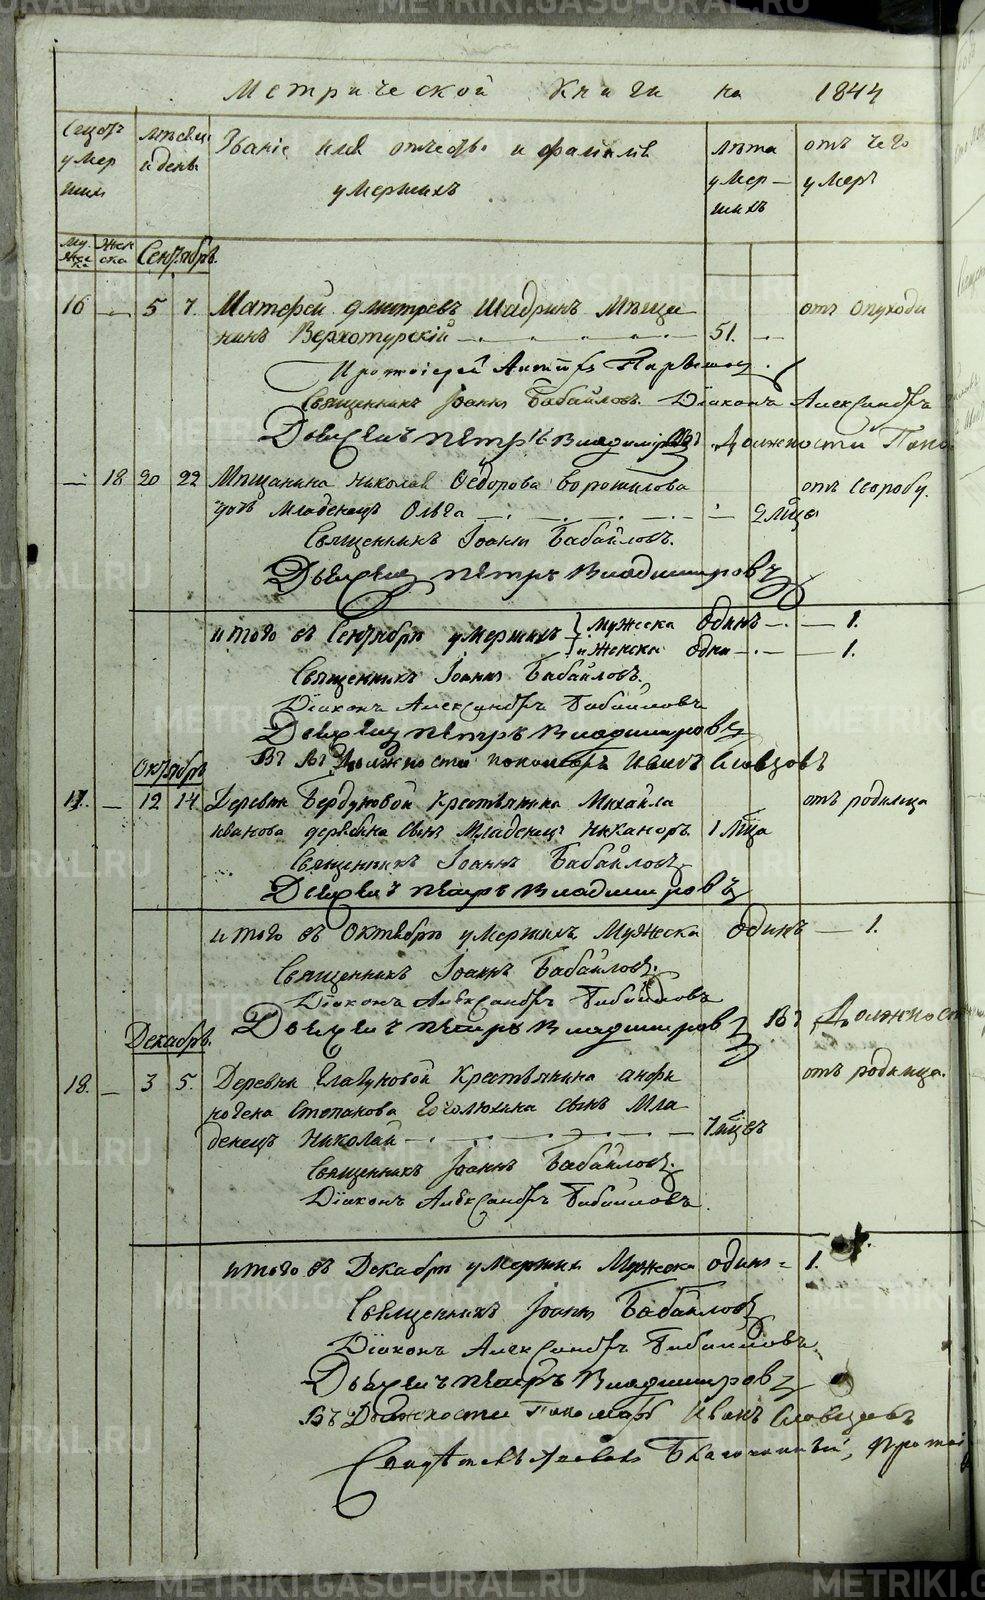 Метрической Книги на 1844
Счетъ умершихъ
мѣсяцъ и день
Званіе имя отчество и фамилія умершихъ
лѣта умершихъ
отъ чего умеръ
Мужеска
Женска
Сентябрь.
16 — 5 7. Матфей Дмитревъ Шадринъ Мѣща отъ опухоли
нинъ Верхотурскій — 51. —
Протоіерей
Священникъ Іоаннъ Бабайловъ. Діаконъ Александръ
Дьячекъ Петръ Владиміровъ Въ должности Поно
— 18 20 22 Мѣщанина Николая Федорова Ворошилова отъ скоробу.
дочь младенецъ Ольга — 2 мѣсе
Священникъ Іоаннъ Бабайловъ.
Дьячекъ Петръ Владиміровъ
итого въ Сентябрѣ умершихъ мужеска одинъ — 1.
и женска одна — 1.
Священникъ Іоаннъ Бабайловъ.
Діаконъ Александръ Бабайловъ
Дьячекъ Петръ Владиміровъ
Въ должности пономаръ Иванъ Словцовъ
Октябрь
17. — 12 14. Деревни Бердюковой крестьянина Михайла отъ родимца
иванова дерябина сынъ младенецъ Никаноръ 1 мѣца
Священникъ Іоаннъ Бабайловъ
Дьячекъ Петръ Владиміровъ
итого въ Октябрѣ умершихъ мужеска одинъ — 1.
Священникъ Іоаннъ Бабайловъ.
Діаконъ Александръ Бабайловъ
Дьячекъ Петръ Владиміровъ Въ Должнос
Декабрь.
18. — 3 5. Деревни Глазуновой крестьянина анфи отъ родимца.
ногена Степанова сынъ мла
денецъ Николай — мѣцъ
Священникъ Іоаннъ Бабайловъ.
Діаконъ Александръ Бабайловъ.
итого въ Декабрѣ умершихъ мужеска одинъ = 1.
Священникъ Іоаннъ Бабайловъ
Діаконъ Александръ Бабайловъ.
Дьячекъ Петръ Владиміровъ
Въ Должности Пономаръ Иванъ Словцовъ
Свидѣтельствовалъ Благочинный, Протоі
METRIKI.GASO-URAL.RU